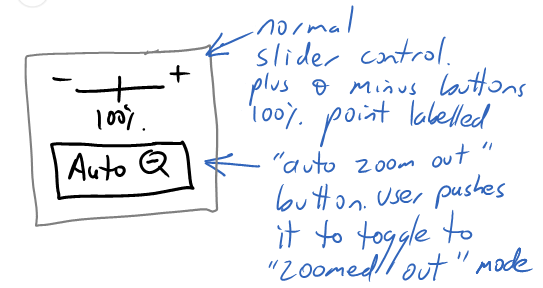 normal
slider control.
plus & minus buttons
100% point labelled
- +
100%.
Auto
"auto zoom out"
button. User pushes
it to toggle to
"zoomed out" mode